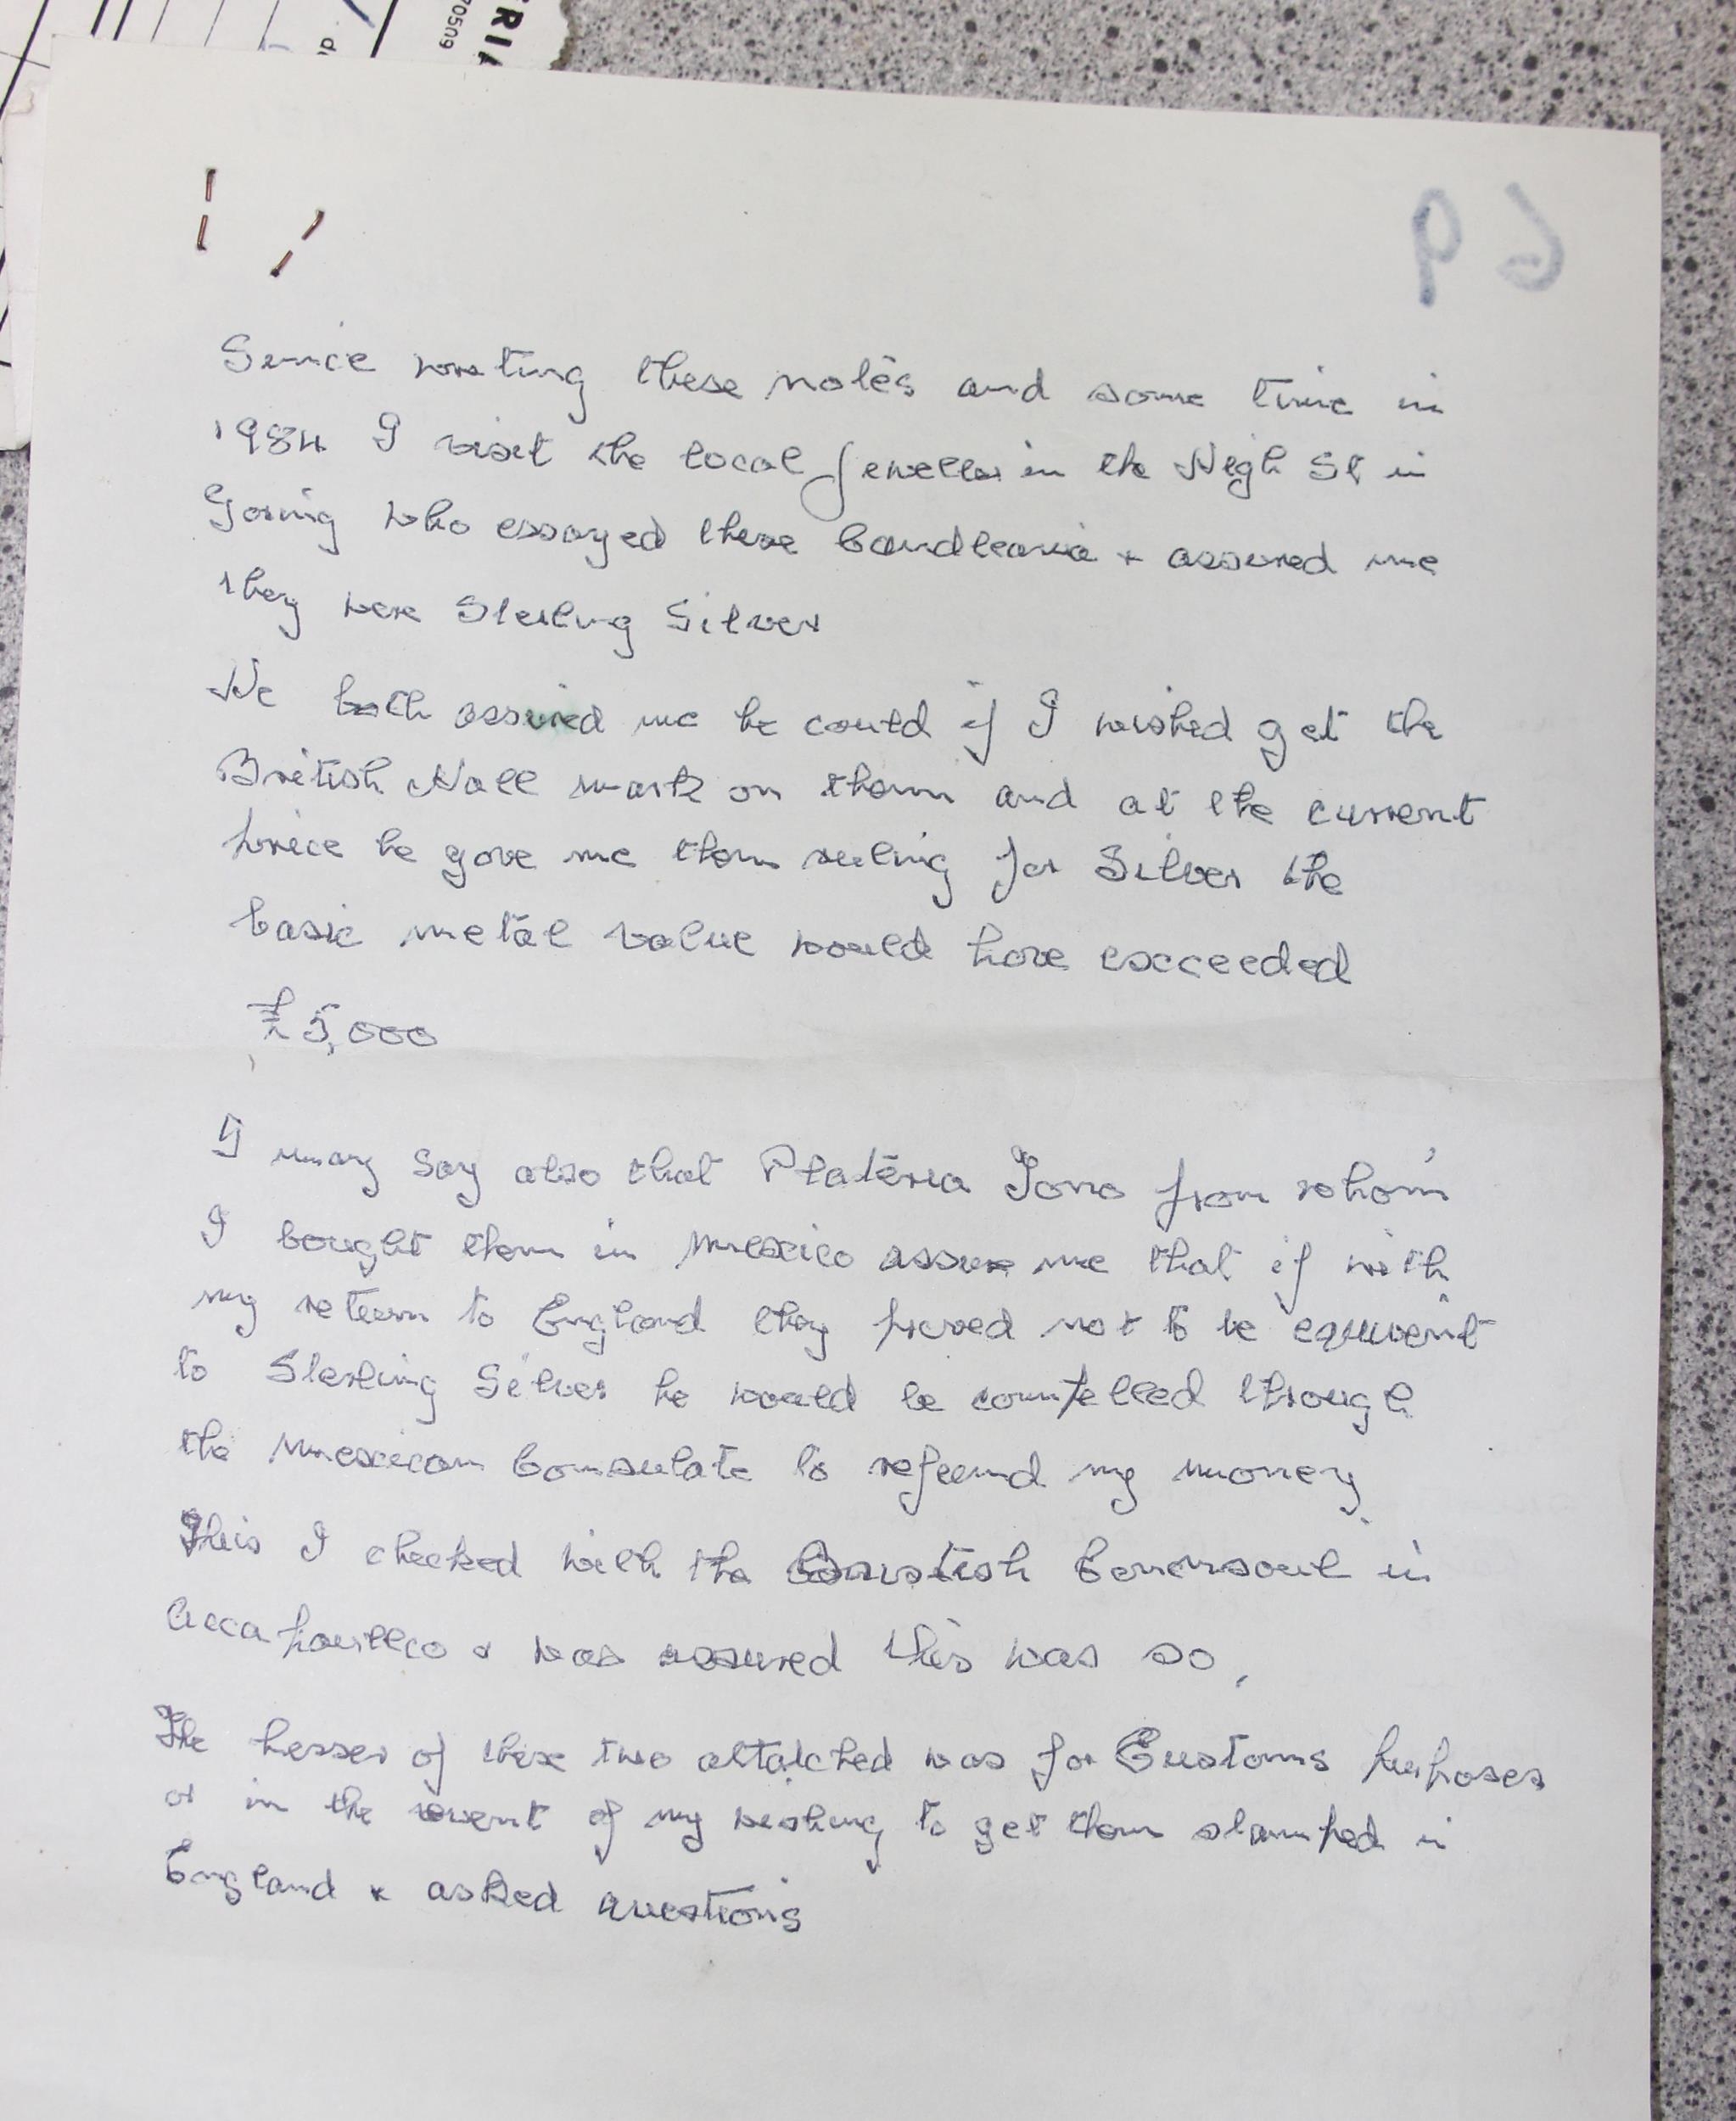 RIA
70509
Since writing these notes and some time in
1984 I visit the local Jeweller in the High St in
Goring who essayed these Candleabra + assured me
they were Sterling Silver
He both assured me he could if I wished get the
British Hall mark on them and at the current
price he gove me then ruling for Silver the
basic metal value would have exceeded
£5,000
I may say also that Plateria Jono from whom
I bought them in Mexico assure me that if with
my return to England they proved not to be
to Sterling Silver he would be compelled through
the Mexican Consulate to refund my money
This I checked with the British in
+ was assured this was so,
The lesser of these two attatched was for Customs purposes
or in the event of my wishing to get them stamped in
England + asked questions